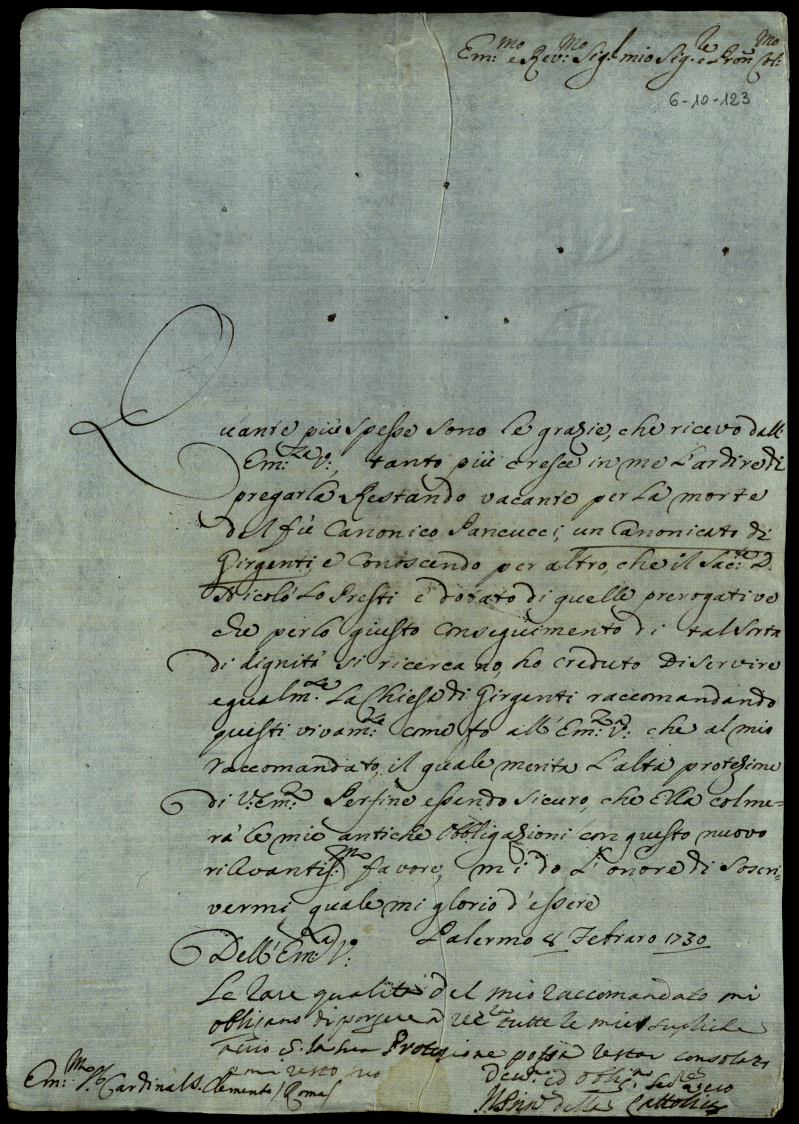 Em:mo e Rev:mo Sig.e mio Sig.re e Pron Col:mo
6-10-123
Quante più spesse sono le grazie, che ricevo dall'
Em:za V:, tanto più cresce in me l'ardire di
pregarla Restando vacante per la morte
del fù Canonico Pancucci, un Canonicato di
Girgenti, e Conoscendo per altro, che il Sac:te D.
Nicolò Lo Presti è dotato di quelle prerogative
che per lo giusto conseguimento di tal sorta
di dignità si ricercano, ho creduto di servire
egualm:te La Chiesa di Girgenti raccomandando
questi vivam:te come fo all'Em:za V: che al mio
raccomandato, il quale merita l'alta protezione
di V: Em:za Perfine essendo sicuro, che Ella colme=
rà le mie antiche obbligazioni con questo nuovo
rilevantis:mo favore, mi do l'onore di soscri-
vermi quale mi glorio d'essere
Dell'Em:za V: Palermo 8 Febraro 1730
Le rare qualità del mio raccomandato mi
obligano di porgere a tutte le mie supliche
la sua Protezione possa restar consolato
e resto
Em:mo Cardinal S. Clemente / Roma / ed obblig:mo
della Cattolica